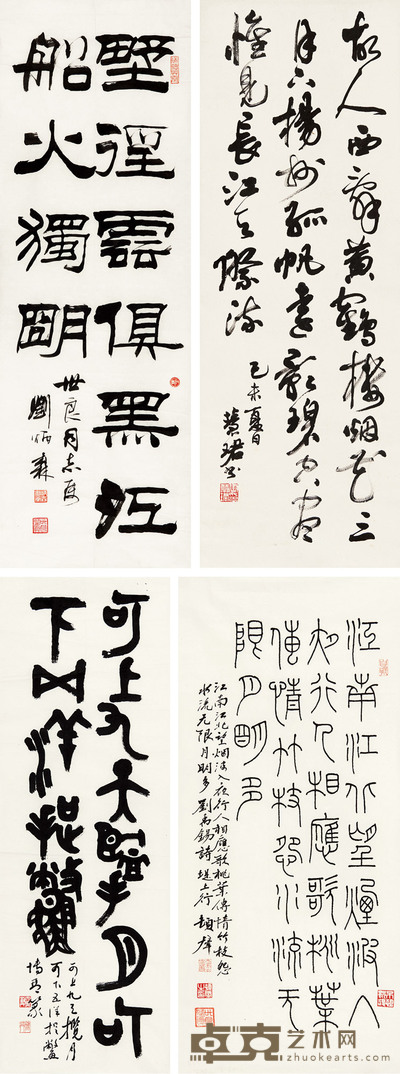 野徑雲俱黑江
船火獨明
世良同志屬
劉炳森
故人西辭黃鶴樓烟花三
月下揚州孤帆遠影碧空盡
惟見長江天際流
己未夏日
慧珺書
可上九天攬月可
下五洋捉鱉
可上九天攬月
可下五洋捉鱉
江南江北望煙波入
夜行人相應歌桃葉
傳情竹枝怨水流无
限月明多
江南江北望烟波入夜行人相應歌桃葉傳情竹枝怨
水流无限月明多劉禹錫詩堤上行
卓克艺术网
zhuokearts.com